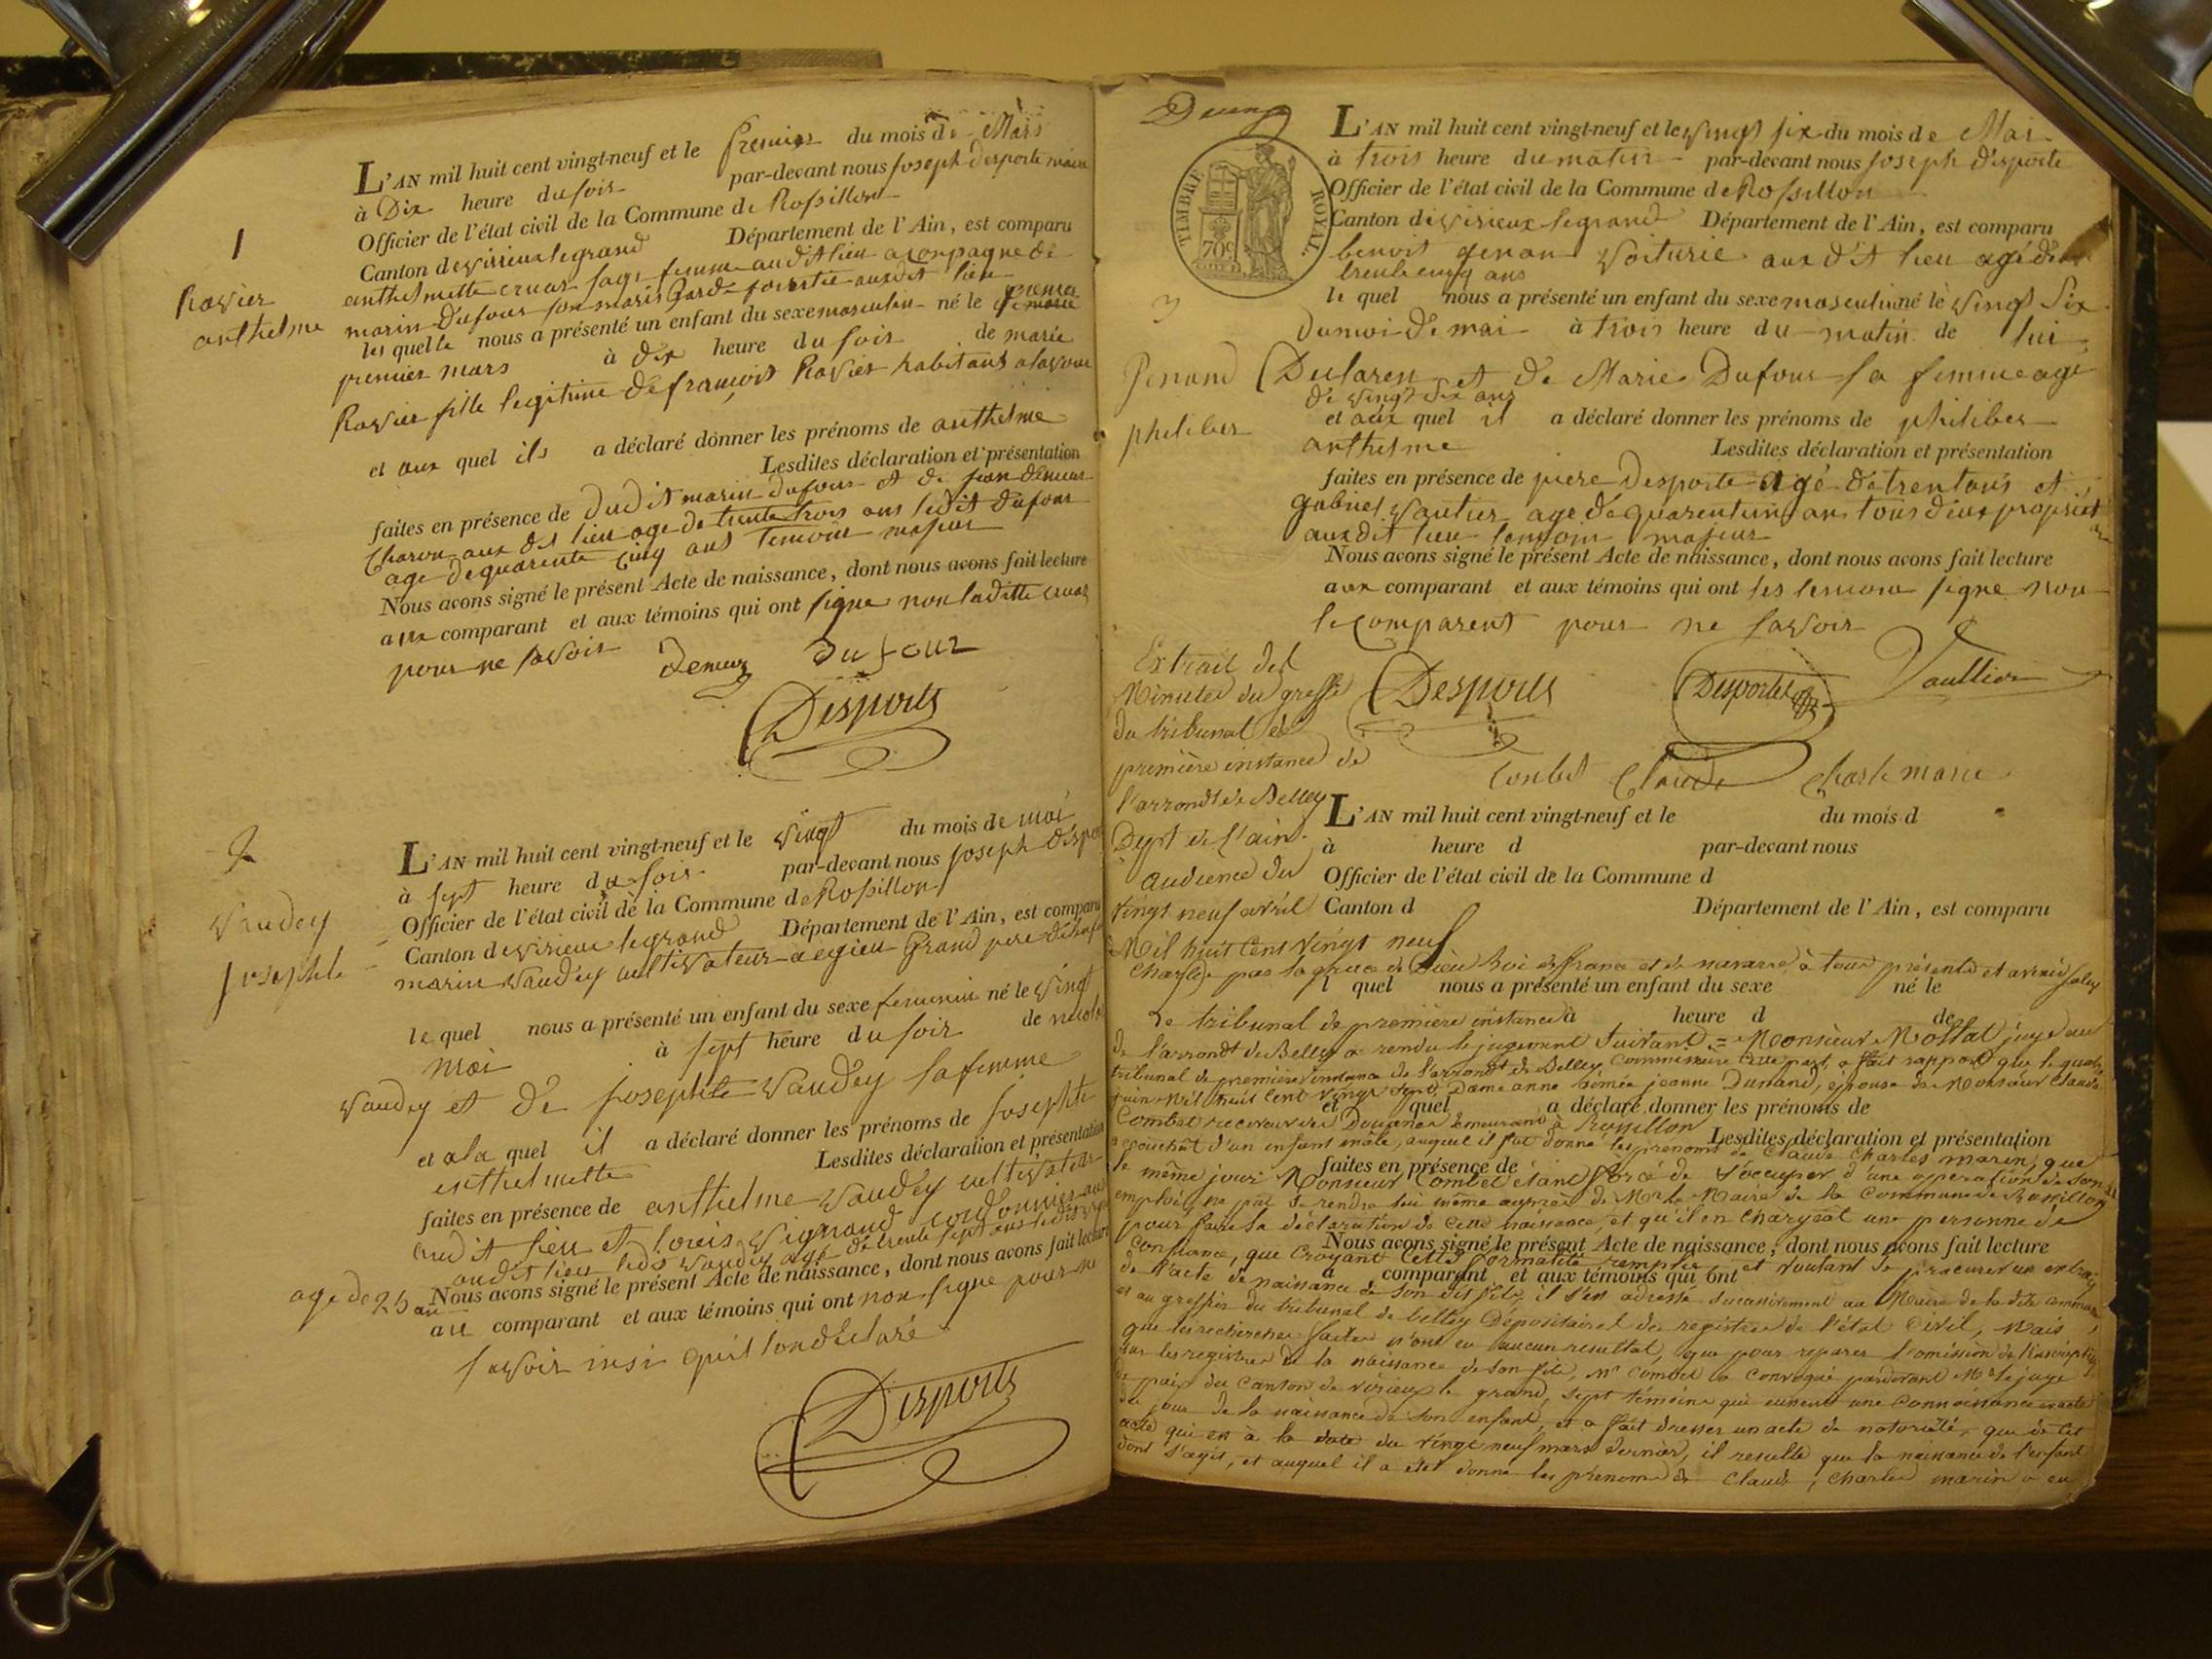 1
Ravier
anthelme
L'AN mil huit cent vingt-neuf et le premier du mois de Mars
à Dix heure du soir par-devant nous joseph desporte maire
Officier de l'état civil de la Commune de Rossillon
Canton de virieux le grand Département de l'Ain, est comparu
anthelmette cruas sage femme audit lieu acompagne de
marin Dufour son maris garde forestie auxdit lieu
les quelle nous a présenté un enfant du sexe masculin né le
premier mars à dix heure du soir de marie
Ravier fille legitime de françois Ravier habitant
et aux quel ils a déclaré donner les prénoms de anthelme
Lesdites déclaration et présentation
faites en présence de dudit marin dufour et de jean demeur
Charon aux dit lieu age de trente trois ans ledit dufour
age de quarente cinq ans temoin majeur
Nous avons signé le présent Acte de naissance, dont nous avons fait lecture
aux comparant et aux témoins qui ont signe non laditte cruas
pour ne savoir
Demeur dufour
Desportes
2
Vaudey
josephte
L'AN mil huit cent vingt-neuf et le vingt du mois de mai
à sept heure du soir par-devant nous joseph despor
Officier de l'état civil de la Commune de Rossillon
Canton de virieux le grand Département de l'Ain, est comparu
marin vaudey cultivateur a egieu Grand pere
le quel nous a présenté un enfant du sexe femenin né le vingt
mai à sept heure du soir de
Vaudey et de josephte Vaudey sa femme
et ala quel il a déclaré donner les prénoms de josephte
enthelmette Lesdites déclaration et présentation
faites en présence de anthelme vaudey cultivateur
audit lieu et louis vignaud cordonnier
audit lieu ledit vaudey agé de trente sept ans ledit
age de 25 an
Nous avons signé le présent Acte de naissance, dont nous avons fait lecture
au comparant et aux témoins qui ont non signe pour ne
savoir insi quil lon déclaré
Desportes
Deung
TIMBRE ROYAL
70c
3
Penand
philiber
L'AN mil huit cent vingt-neuf et le vingt six du mois de Mai
à trois heure du matin par-devant nous joseph desporte
Officier de l'état civil de la Commune de Rossillon
Canton de virieux le grand Département de l'Ain, est comparu
benoit penan voiturie aux dit lieu agé de
trente cinq ans
le quel nous a présenté un enfant du sexe masculin né le vingt six
du moi de mai à trois heure du matin de lui
Declaren et de Marie Dufour sa femme age
de vingt six ans
et aux quel il a déclaré donner les prénoms de philiber
anthelme Lesdites déclaration et présentation
faites en présence de piere desporte agé de trent ans et
gabriel vautier age de quarent un ans tous deux propriet
aux dit lieu temoin majeur
Nous avons signé le présent Acte de naissance, dont nous avons fait lecture
aux comparant et aux témoins qui ont les temoin signe non
le comparent pour ne savoir
Desportes Desportes Vaullier
Combet Claude Charle marie
Extrait des
Minutes du greffe
du tribunal de
première instance de
l'arrondt de Belley
Dept de l'ain.
audience du
vingt neuf avril
Mil huit cent vingt neuf
L'AN mil huit cent vingt-neuf et le du mois d
à heure d par-devant nous
Officier de l'état civil de la Commune d
Canton d Département de l'Ain, est comparu
Charles par la grace de Dieu Roi de france et de navarre, à tous présents et avenir salut
l quel nous a présenté un enfant du sexe né le
Le tribunal de première instance
à heure d de
de l'arrondt de Belley a rendu le jugement suivant = Monsieur Mollat juge au
tribunal de première instance de l'arrondt de Belley commissaire en cette part, a fait rapport que le quatre
juin Mil huit cent vingt sept, Dame anne aimée jeanne Dumand, epouse de Monsieur Claude
et quel a déclaré donner les prénoms de
Combet receveur des Douanes demeurant à Rossillon
Lesdites déclaration et présentation
accouchât d'un enfant mâle, auquel il fut donné les prénoms de Claude Charles marin; que
faites en présence de
le même jour Monsieur Combet étant forcé de s'occuper d'une opération de son
emploi, ne pût se rendre lui même auprès de Mr le Maire de la Commune de Rossillon
pour faire la déclaration de cette naissance, et qu'il en chargeât une personne de
Nous avons signé le présent Acte de naissance, dont nous avons fait lecture
confiance, que croyant cette formalité remplie, et voulant se procurer un extrait
a comparant et aux témoins qui ont
de l'acte de naissance de son dit fils, il s'est adressé succassivement au Maire de la dite commune,
et au greffier du tribunal de belley Dépositaires des registres de l'état civil, Mais
que les recherches faites n'ont eu aucun resultat, que pour reparer l'omission de l'inscription
sur les registres de la naissance de son fils, Mr Combet a convoqué pardevant Mr le juge
de paix du canton de virieux le grand, sept témoins qui eurent une connoissance exacte
du jour de la naissance de son enfant, et a fait dresser un acte de notoriété, que de cet
acte qui est à la date du vingt neuf mars dernier, il resulte que la naissance de l'enfant
dont s'agit, et auquel il a été donné les prénoms de Claude, Charles marin a eu